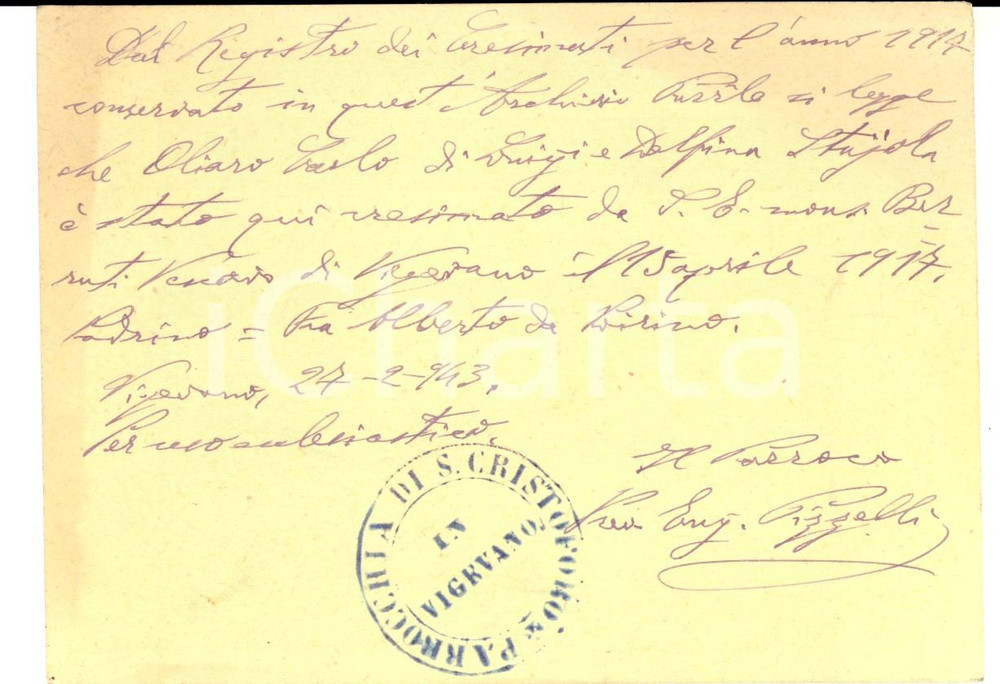 Dal Registro dei Cresimati per l'anno 1917
conservato in quest'Archivio Parr.le si legge
che Oliaro Carlo di Luigi e Delfina
è stato qui cresimato da S. E. mons. Ber=
ruti Vescovo di Vigevano il 15 aprile 1917.
Padrino = Fra Alberto da
Vigevano, 27-2-943.
Per uso ecclesiastico.
Il Parroco
Eug. Pizzelli
PARROCCHIA DI S. CRISTOFORO
IN
VIGEVANO
iCharta